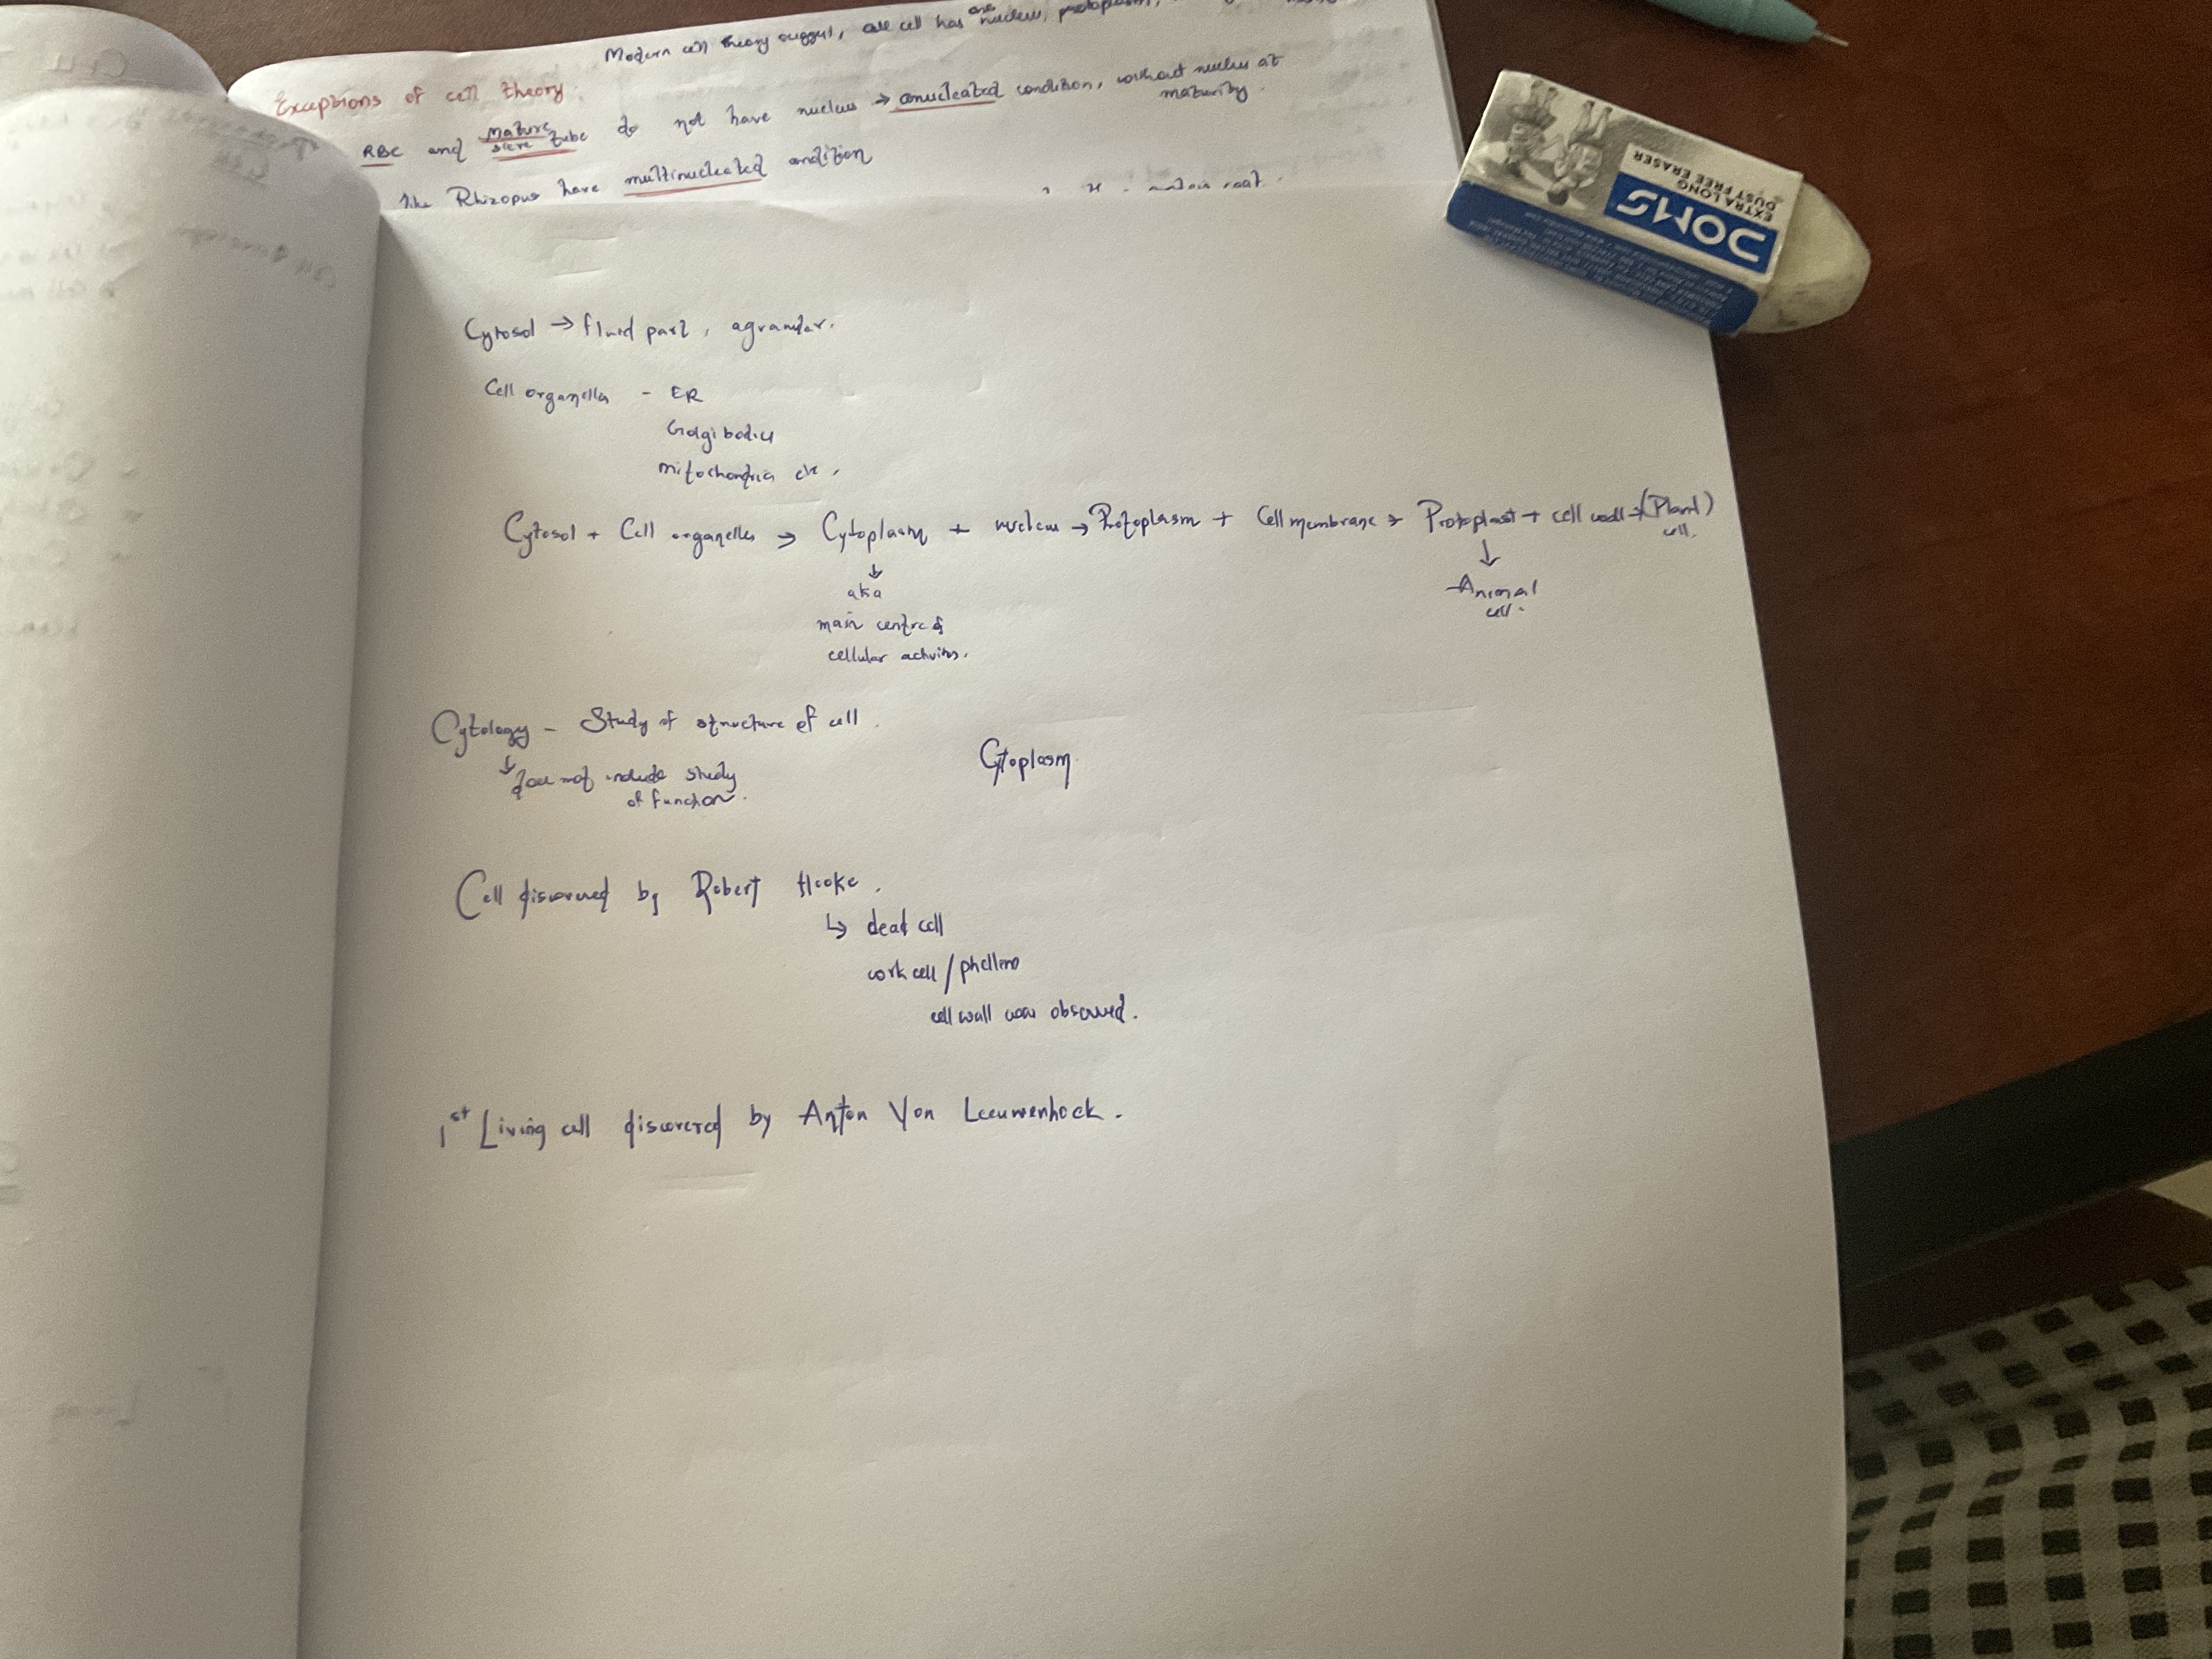 Modern cell theory suggest, all cell has one nucleus, protoplasm,
Exceptions of cell theory.
RBC and mature sieve tube do not have nucleus → anucleated condition, without nucleus at maturity.
like Rhizopus have multinucleated condition
Cytosol → fluid part, agranular.
Cell organelles - ER
Golgi bodies
mitochondria etc.
Cytosol + Cell organelles → Cytoplasm + nucleus → Protoplasm + Cell membrane → Protoplast + cell wall → (Plant) cell.
↓
aka
main centre of
cellular activites.
↓
Animal
cell.
Cytology - Study of structure of cell.
↓ does not include study
of function.
Cytoplasm
Cell discovered by Robert Hooke.
↳ dead cell
cork cell / phellem
cell wall was observed.
1st Living cell discovered by Anton Von Leeuwenhock.
DOMS
EXTRA LONG
DUST FREE ERASER